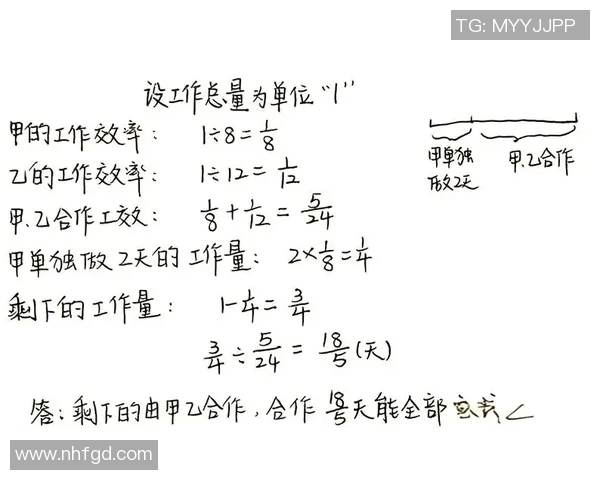 TG: MYYJJPP
设工作总量为单位“1”
甲的工作效率： 1÷8=1/8
乙的工作效率： 1÷12=1/12
甲.乙合作工效： 1/8+1/12=5/24
甲单独做2天的工作量： 2×1/8=1/4
剩下的工作量： 1-1/4=3/4
3/4÷5/24=18/5(天)
甲单独做2天 甲.乙合作
答：剩下的由甲乙合作，合作18/5天能全部
www.nhfgd.com